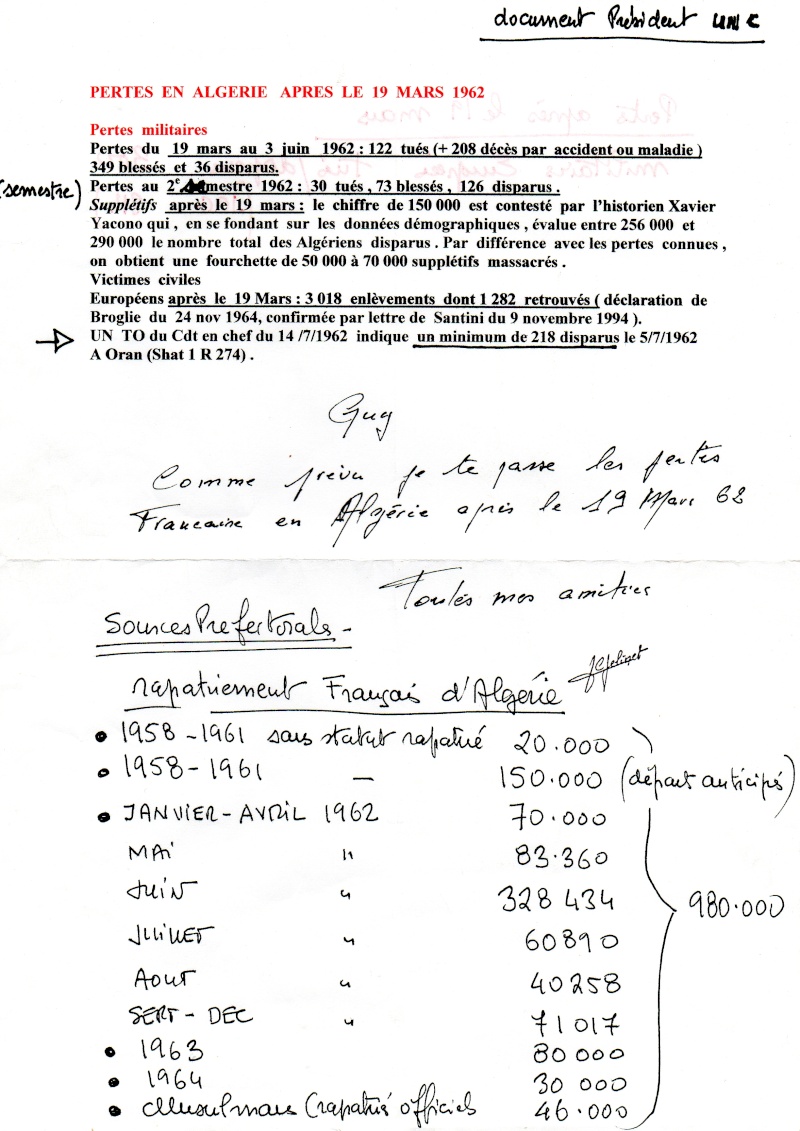 document Président UNC
PERTES EN ALGERIE APRES LE 19 MARS 1962
Pertes militaires
Pertes du 19 mars au 3 juin 1962 : 122 tués (+ 208 décès par accident ou maladie )
349 blessés et 36 disparus.
(semestre) Pertes au 2e mestre 1962 : 30 tués , 73 blessés , 126 disparus .
Supplétifs après le 19 mars : le chiffre de 150 000 est contesté par l'historien Xavier
Yacono qui , en se fondant sur les données démographiques , évalue entre 256 000 et
290 000 le nombre total des Algériens disparus . Par différence avec les pertes connues ,
on obtient une fourchette de 50 000 à 70 000 supplétifs massacrés .
Victimes civiles
Européens après le 19 Mars : 3 018 enlèvements dont 1 282 retrouvés ( déclaration de
Broglie du 24 nov 1964, confirmée par lettre de Santini du 9 novembre 1994 ).
UN TO du Cdt en chef du 14 /7/1962 indique un minimum de 218 disparus le 5/7/1962
A Oran (Shat 1 R 274) .
Guy
Comme prévu je te passe les pertes
Francaise en Algérie après le 19 Mars 62
Toutes mes amitiés
Sources Prefectorals -
rapatriement Français d'Algérie
• 1958 - 1961 sans statut rapatrié 20.000
• 1958 - 1961 — 150.000 (départ anticipés)
• JANVIER - AVRIL 1962 70.000
MAI " 83.360
JUIN " 328 434
JUILLET " 60890
980.000
AOUT " 40258
SEPT - DEC " 71017
• 1963 80 000
• 1964 30 000
• Musulmans (rapatriés officiels 46.000